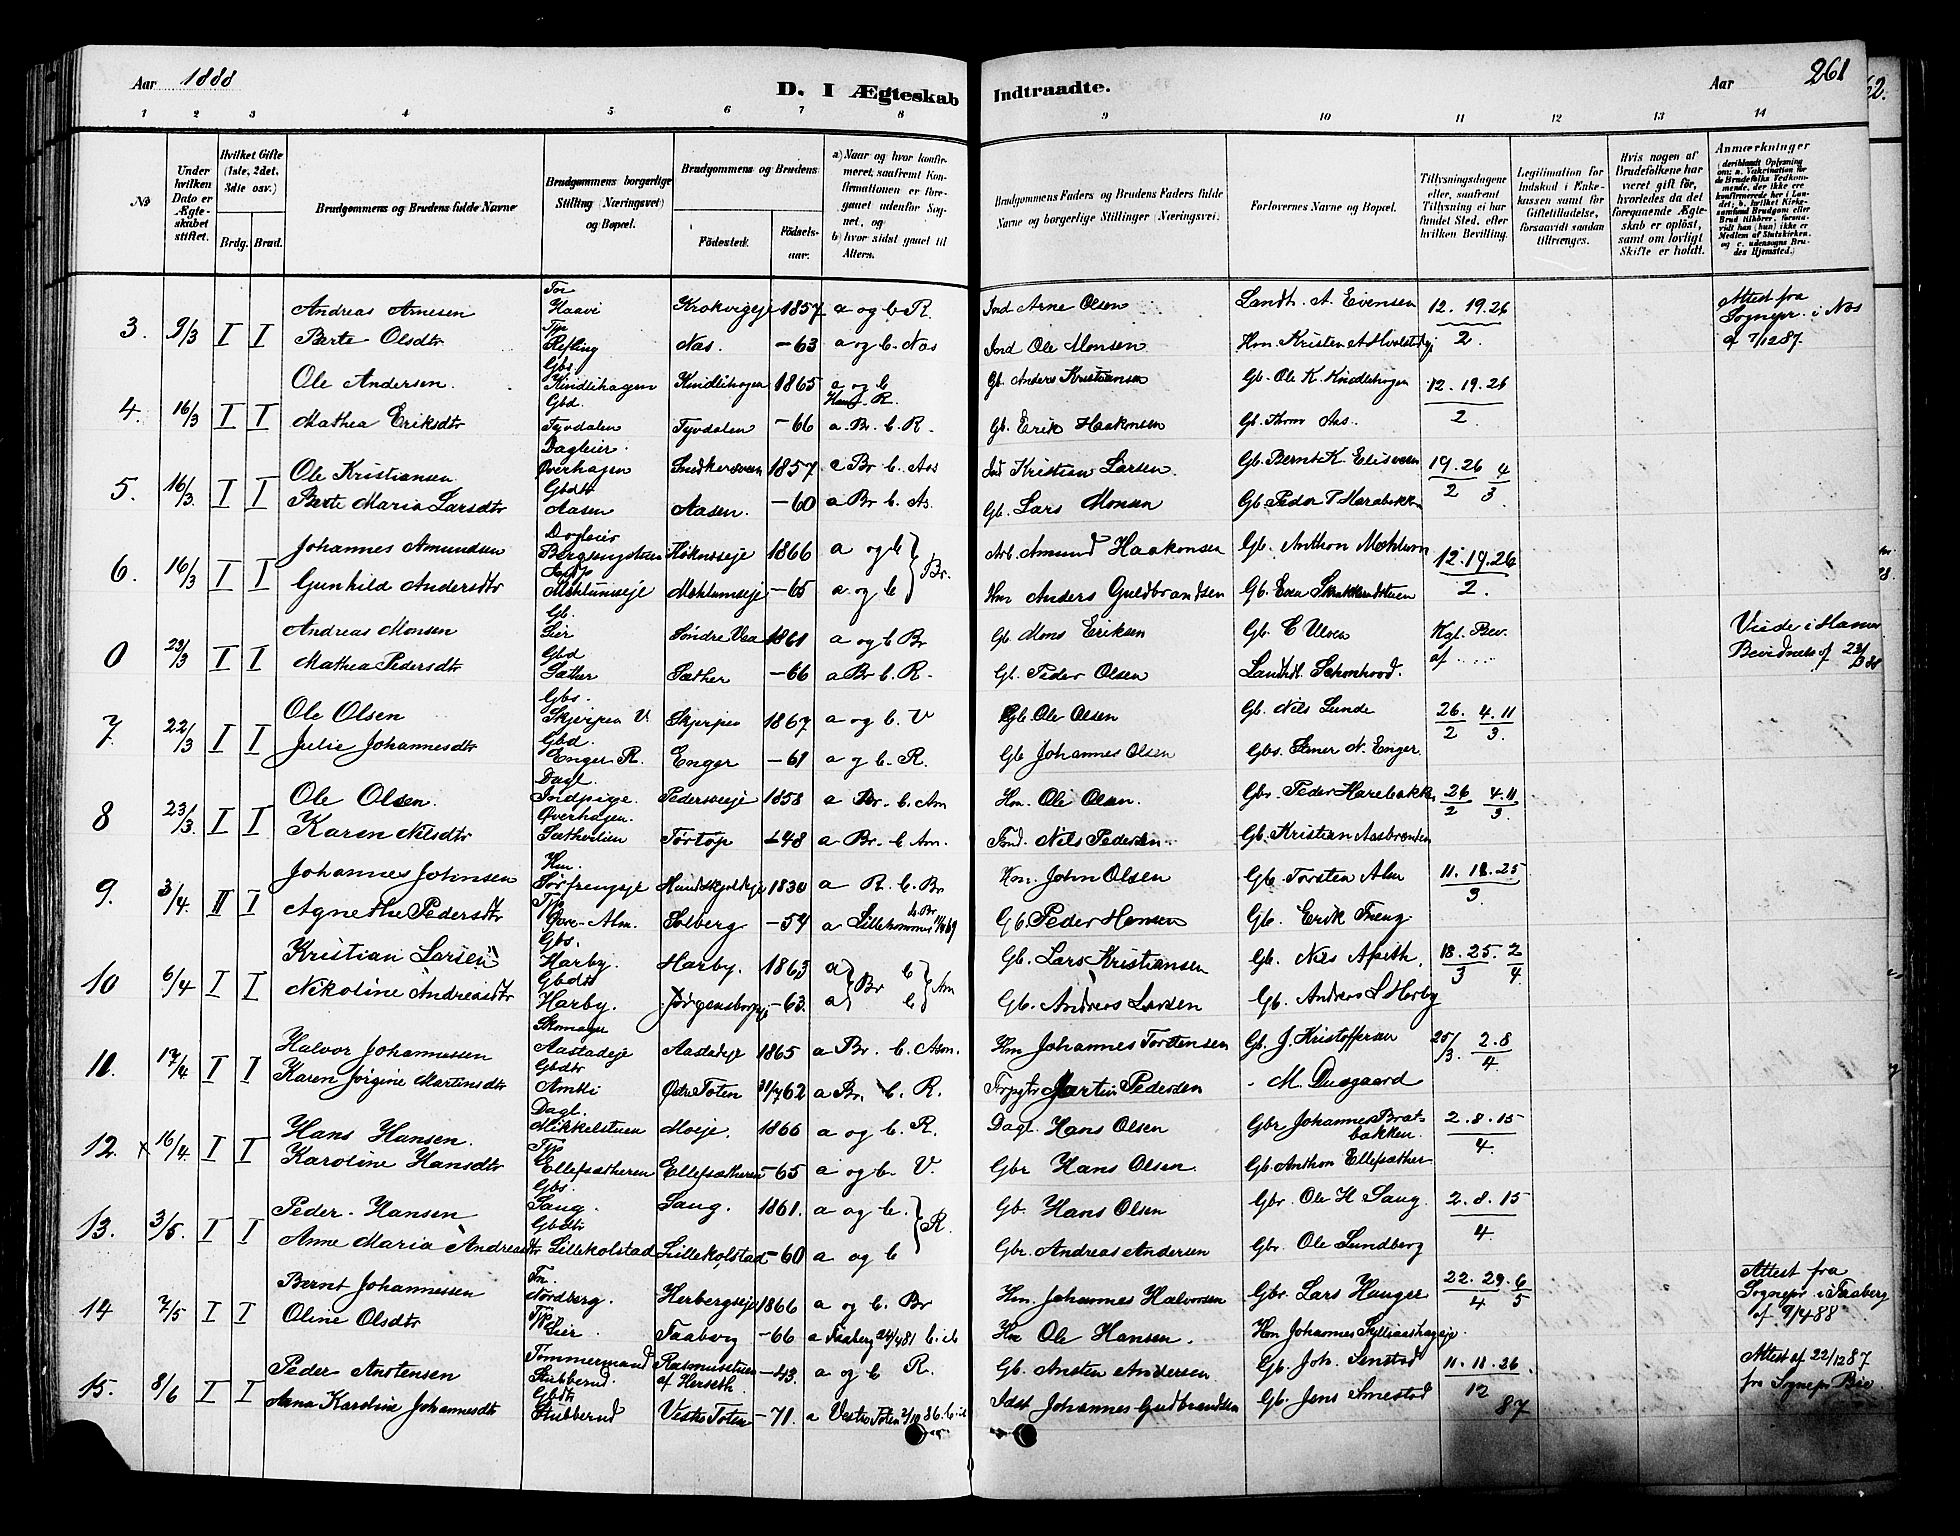 Aar 1888
D. I Ægteskab Indtraadte.
Aar 261
1 2 3 4 5 6 7 8 9 10 11 12 13 14
No
Under hvilken Dato er Ægteskabet stiftet.
Hvilket Gifte (1ste, 2det, 3die osv.)
Brdg. Brud.
Brudgommens og Brudens fulde Navne
Brudgommens borgerlige Stilling (Næringsvei) og Bopæl.
Brudgommens og Brudens
Fødested. Fødselsaar.
a) Naar og hvor konfirmeret, saafremt Konfirmationen er foregaaet udenfor Sognet, og
b) hvor sidst gaaet til Alters.
Brudgommens Faders og Brudens Faders fulde Navne og borgerlige Stillinger (Næringsvei.
Forlovernes Navne og Bopæl.
Tillysningsdagene eller, saafremt Tillysning ei har fundet Sted, efter hvilken Bevilling.
Legitimation for Indskud i Enkekassen samt for Giftetilladelse, forsaavidt saadan tiltrænges.
Hvis nogen af Brudefolkene har været gift før, hvorledes da det foregaaende Ægteskab er opløst, samt om lovligt Skifte er holdt.
Anmærkninger
(deriblandt Oplysning om: a. Vakcination for de Brudefolks Vedkommende, der ikke ere konfirmerede her i Landet; b. hvilket Kirkesamfund Brudgom eller Brud tilhører, forsaavidt han (hun) ikke er Medlem af Statskirken, og c. udensogns Brudes Hjemsted.)
3. 9/3 I I Andreas Arnesen Haavi Krokvigeje 1857 a og b R. Ind Arne Olsen Landh. A. Evensen 12. 19. 26 Attest fra
Berte Olsdtr Refling Næs. -63 a og b. Næs Ind Ole Monsen Hm. Kristen 2. Sognepr. i Næs af 7/12 87.
4. 16/3 I I Ole Andersen. Gbs. Kindlihagen Kindlihagen 1865 a og b R. Gb. Anders Kristiansen Gb. Ole K. Kindlihagen 12. 19. 26
Mathea Eriksdtr Gbd. Tyvdalen Tyvdalen -66 a. Br. b. R. Gb. Erik Haakonsen Gb. Thom Aas. 2
5. 16/3 I I Ole Kristiansen Dagleier. Øverhagen 1857 a Br b. Aas Ind Kristian Larsen. Gb. Bernt K. 19. 26 4
Berte Maria Larsdtr Gbdtr Aasen Aasen. -60 a Br b. As. Gb. Lars Monsen Gb. Peder P Harebakken 2 3
6. 16/3 I I Johannes Amundsen 1866 a og b } Br. Arb. Amund Haakonsen Gb. Anthon Mæhlum 12. 19. 26
Gunhild Andersdtr Mæhlumseje Mæhlumseje -65 a og b Hm Anders Guldbrandsen Gb. Even 2.
0 23/3 I I Andreas Monsen Gb. Lier Søndre 1861 a og b Br Gb. Mons Eriksen Gb. C Ulven Kgl. Bev. Viede i Hamar
Mathea Pedersdtr Gbd Sæther Sæther -66 a Br b. R. Gb. Peder Olsen Landhl. af ..... 23/3 88
7. 22/3 I I Ole Olsen Gbs. Skjerpen V. Skjerpen 1867 a og b. V Gb. Ole Olsen Gb. Nils Lunde 26. 4. 11
Julie Johannesdtr Gbd. Enger R. Enger -61 a og b. R. Gb Johannes Olsen Gbs. N. Enger. 2 3.
8 23/3 I I Ole Olsen. Dagl. Øverhagen. Pederseje 1858 a Br. b. Am Hm. Ole Olsen. Gbr. Peder Harebakken 26 4. 11
Karen Nilsdtr Indpige. Sætherlien Tortop -48 a Br. b. Am. Ind. Nils Pedersen Gb. Kristian 2 3.
9. 3/4 II I Johannes Johnsen Hm. 1830 a R. b. Br Hm. John Olsen Gb. Torsten Alm 11. 18. 25
Agnethe Pedersdtr Tjp Øvre-Alm. Solberg -54 a Lillehammer b. Br Gb. Peder Hansen Gb. Erik Freng 3
10 6/4 I I Kristian Larsen Gbs. Harby. Harby. 1863 a } Br b } Am Gb. Lars Kristiansen Gb. Nils 18. 25. 2
Nikoline Andreasdtr Gbdtr Harby. -63. a b Gb. Andreas Larsen Gb. Anders L Harby 3 4.
11. 17/4 I I Halvor Johannessen Skomager Aastadeje Aastadeje 1865 a Br. b. Asm. Hm Johannes Torstensen Gb. J. Kristoffersen 25/3. 2. 8
Karen Jørgine Martinsdtr Gbdtr Amlie Østre Toten 31/7 62 a Br. b. R. Martin Pedersen - M. Dusgaard 4
12. x 16/4. I I Hans Hansen. Dagl. Mikkelstuen Moeje. 1866 a og b. R. Dagl. Hans Olsen Gbr Johannes Bratbakken. 2. 8. 15
Karoline Hansdtr Tjp Ellefsætheren Ellefsætheren -65 a og b. V. Gbr Hans Olsen Gb. Anthon Ellefsæther 4.
13. 3/5. I I Peder Hansen Gbs. Saug. Saug. 1861. a og b. } R. Gb. Hans Olsen Gbr. Ole H Saug 2. 8. 15
Anne Maria Andreasdtr Gbdtr Lillekolstad Lillekolstad -60 a og b Gbr. Andreas Andersen Gbr. Ole Lundberg 4
14 7/5 I I Bernt Johannessen Nordberg. Herbergseje 1866 a og b. Br Hm. Johannes Halvorsen Gbr. Lars Hauger 22. 29. 6 Attest fra
Oline Olsdtr Tjp Lier. Faaberg -66 a Faaberg 24/4 81 b. ib Hm Ole Hansen. Hm Johannes 4 5 Sognepr. i Faaberg af 9/4 88
15. 8/6 I I Peder Anstensen Tommermand Stubberud Rasmusstuen af Herseth. -43. a og b R. Gb. Ansten Andersen Gb. Joh. Smestad 11. 18. 26 Attest af 22/12 87
Anna Karoline Johannesdtr Gbdtr Stubberud Vestre Toten -71. a Vestre Toten 2/10 86. b. ib Johannes Gudbrandsen Gb. Jens Smestad 12 87 fra Sognepr